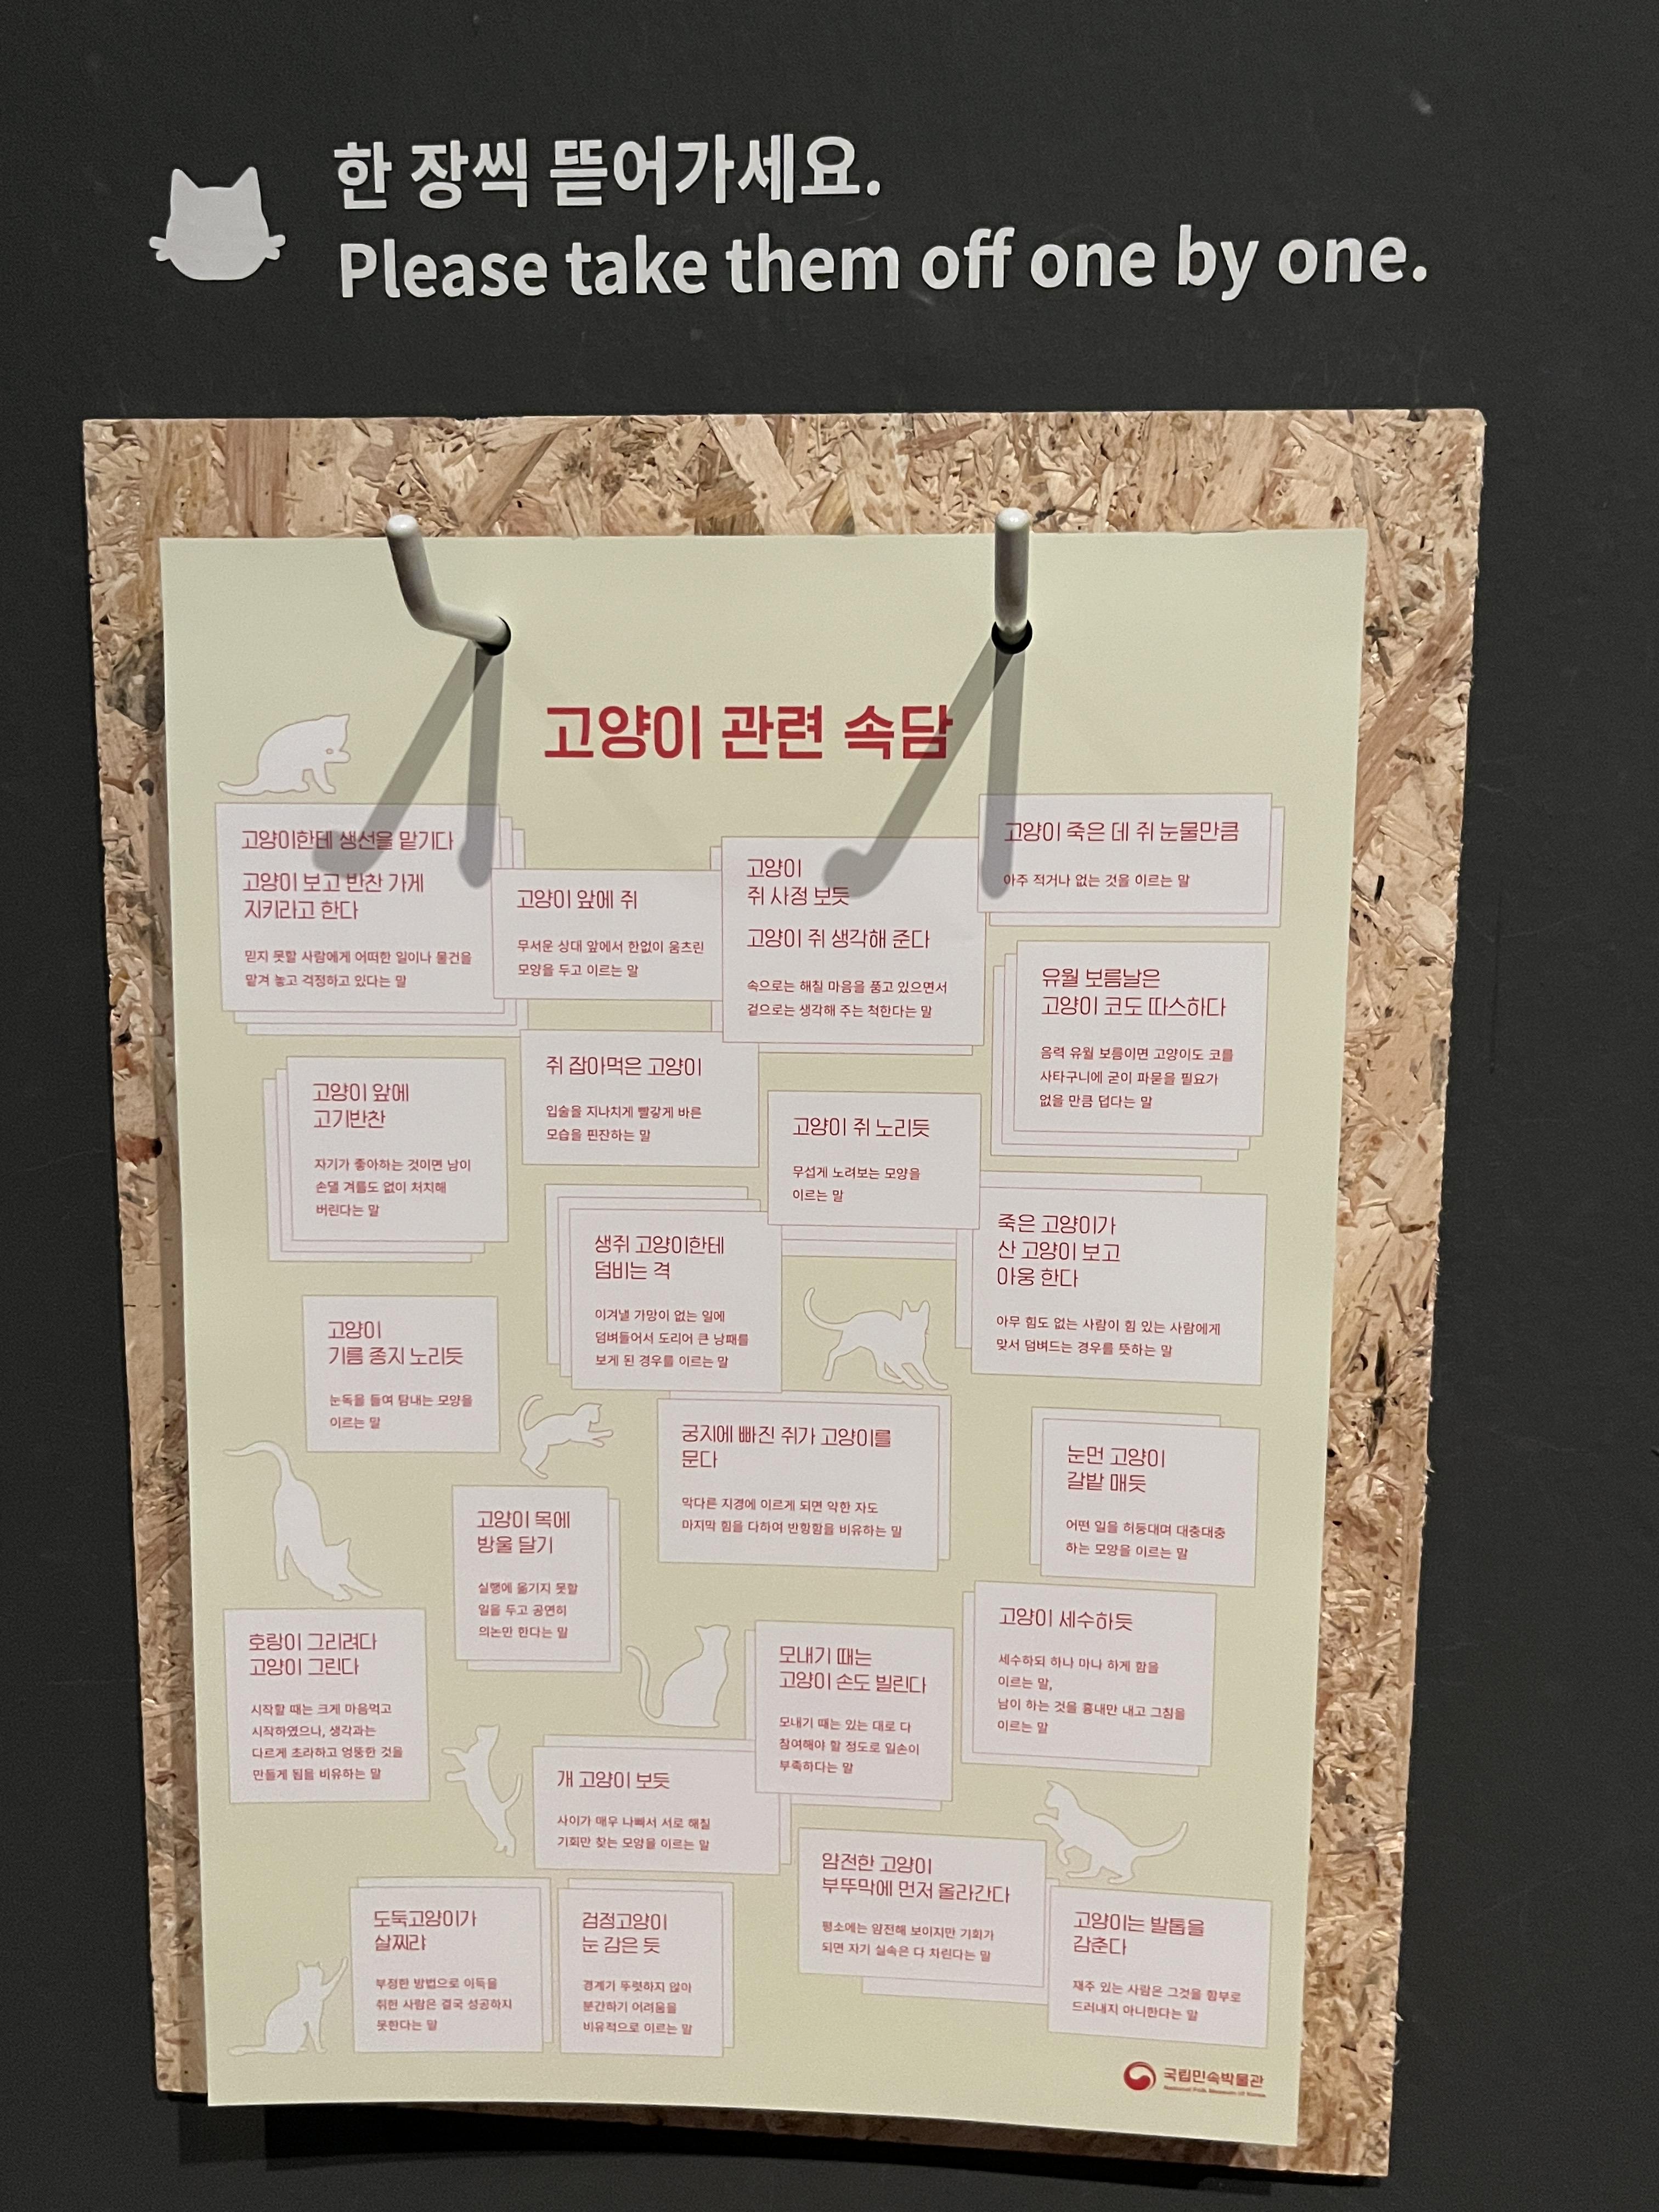 한 장씩 뜯어가세요.
Please take them off one by one.
고양이 관련 속담
고양이한테 생선을 맡기다
고양이 보고 반찬 가게
지키라고 한다
믿지 못할 사람에게 어떠한 일이나 물건을
맡겨 놓고 걱정하고 있다는 말
고양이 앞에 쥐
무서운 상대 앞에서 한없이 움츠린
모양을 두고 이르는 말
고양이
쥐 사정 보듯
고양이 쥐 생각해 준다
속으로는 해칠 마음을 품고 있으면서
겉으로는 생각해 주는 척한다는 말
고양이 죽은 데 쥐 눈물만큼
아주 적거나 없는 것을 이르는 말
유월 보름날은
고양이 코도 따스하다
음력 유월 보름이면 고양이도 코를
사타구니에 굳이 파묻을 필요가
없을 만큼 덥다는 말
고양이 앞에
고기반찬
자기가 좋아하는 것이면 남이
손댈 겨를도 없이 처치해
버린다는 말
쥐 잡아먹은 고양이
입술을 지나치게 빨갛게 바른
모습을 핀잔하는 말
고양이 쥐 노리듯
무섭게 노려보는 모양을
이르는 말
생쥐 고양이한테
덤비는 격
이겨낼 가망이 없는 일에
덤벼들어서 도리어 큰 낭패를
보게 된 경우를 이르는 말
죽은 고양이가
산 고양이 보고
아웅 한다
아무 힘도 없는 사람이 힘 있는 사람에게
맞서 덤벼드는 경우를 뜻하는 말
고양이
기름 종지 노리듯
눈독을 들여 탐내는 모양을
이르는 말
궁지에 빠진 쥐가 고양이를
문다
막다른 지경에 이르게 되면 약한 자도
마지막 힘을 다하여 반항함을 비유하는 말
눈먼 고양이
갈밭 매듯
어떤 일을 허둥대며 대충대충
하는 모양을 이르는 말
고양이 목에
방울 달기
실행에 옮기지 못할
일을 두고 공연히
의논만 한다는 말
호랑이 그리려다
고양이 그린다
시작할 때는 크게 마음먹고
시작하였으나, 생각과는
다르게 초라하고 엉뚱한 것을
만들게 됨을 비유하는 말
모내기 때는
고양이 손도 빌린다
모내기 때는 있는 대로 다
참여해야 할 정도로 일손이
부족하다는 말
고양이 세수하듯
세수하되 하나 마나 하게 함을
이르는 말,
남이 하는 것을 흉내만 내고 그침을
이르는 말
개 고양이 보듯
사이가 매우 나빠서 서로 해칠
기회만 찾는 모양을 이르는 말
얌전한 고양이
부뚜막에 먼저 올라간다
평소에는 얌전해 보이지만 기회가
되면 자기 실속은 다 차린다는 말
도둑고양이가
살찌랴
부정한 방법으로 이득을
취한 사람은 결국 성공하지
못한다는 말
검정고양이
눈 감은 듯
경계가 뚜렷하지 않아
분간하기 어려움을
비유적으로 이르는 말
고양이는 발톱을
감춘다
재주 있는 사람은 그것을 함부로
드러내지 아니한다는 말
국립민속박물관
National Folk Museum of Korea